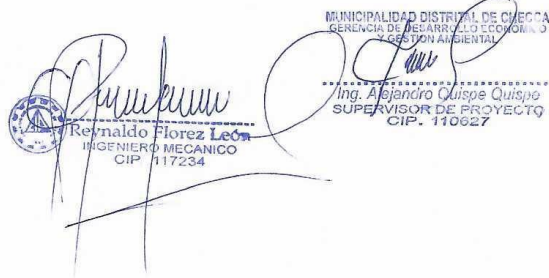 Reynaldo Florez León
INGENIERO MECANICO
CIP 117234
MUNICIPALIDAD DISTRITAL DE CHECCA
GERENCIA DE DESARROLLO ECONOMICO
Y GESTION AMBIENTAL
Ing. Alejandro Quispe Quispe
SUPERVISOR DE PROYECTO
CIP. 110627